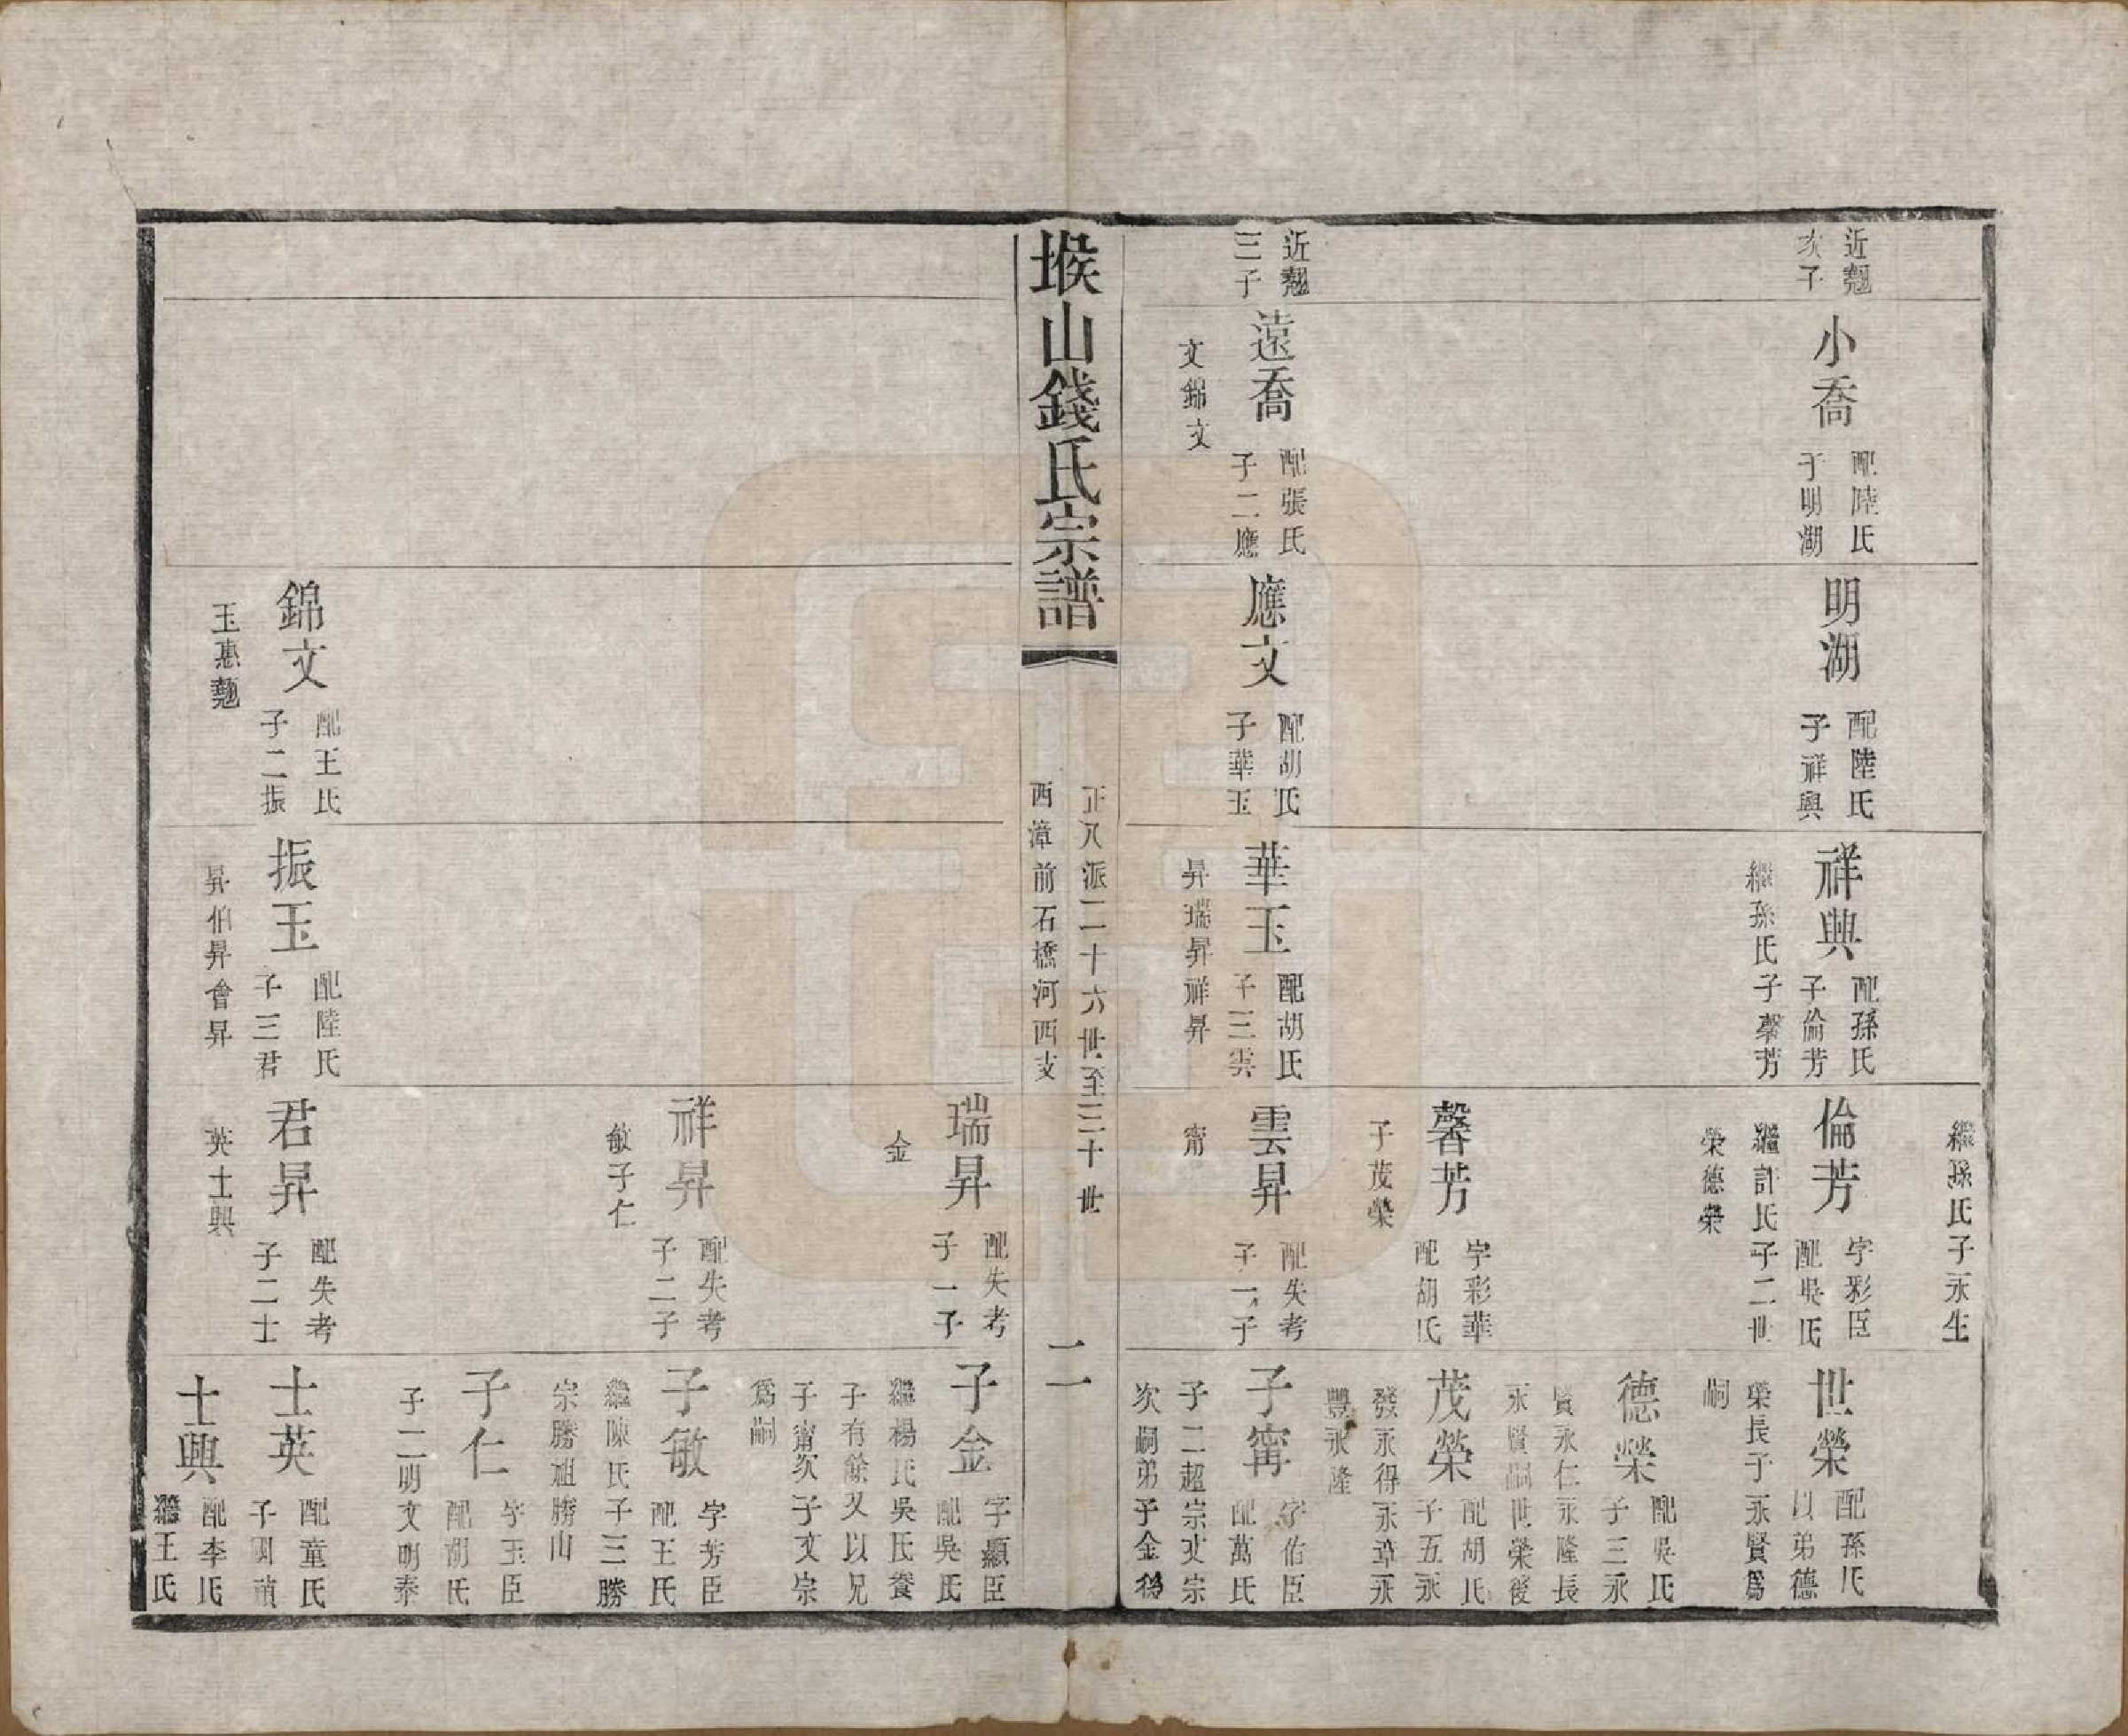 近翹
次子
小喬
配陸氏
子明湖
明湖
配陸氏
子祥興
祥興
配孫氏
子倫芳
繼孫氏子馨芳
繼孫氏子永生
倫芳
字彩臣
配吳氏
繼許氏子二世
榮德榮
世榮
配孫氏
以弟德
榮長子永賢爲
嗣
德榮
配吳氏
子三永
賢永仁永隆長
永賢嗣世榮後
馨芳
字彩華
配胡氏
子茂榮
茂榮
配胡氏
子五永
發永得永章永
豐永隆
近翹
三子
遠喬
配張氏
子二應
文錦文
應文
配胡氏
子華玉
華玉
配胡氏
子三雲
昇瑞昇祥昇
雲昇
配失考
子一子
甯
子甯
字佑臣
配萬氏
子二超宗文宗
次嗣弟子金後
堠山錢氏宗譜
正八派二十六世至三十世
西漳前石橋河西支
二
瑞昇
配失考
子一子
金
子金
字顯臣
配吳氏
繼楊氏吳氏養
子有餘又以兄
子甯次子文宗
爲嗣
祥昇
配失考
子二子
敏子仁
子敏
字芳臣
配王氏
繼陳氏子三勝
宗勝祖勝山
子仁
字玉臣
配胡氏
子二明文明泰
錦文
配王氏
子二振
玉惠翹
振玉
配陸氏
子三君
昇伯昇會昇
君昇
配失考
子二士
英士興
士英
配童氏
子明禎
士興
配李氏
繼王氏